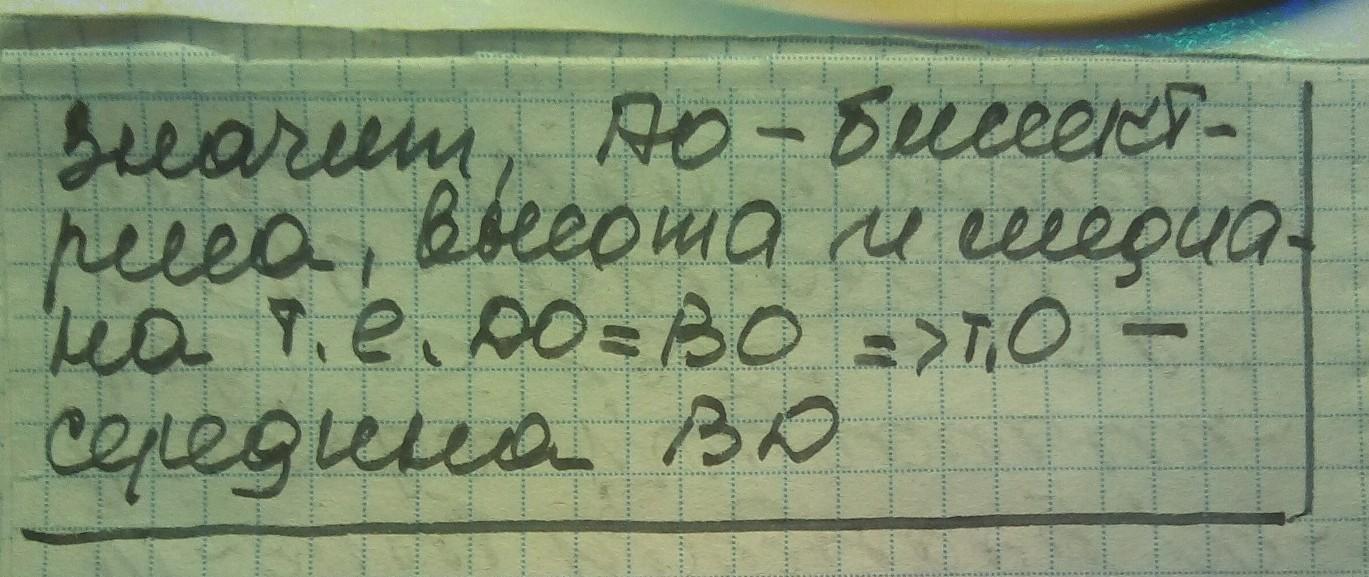 значит, АО - биссект-
риса, высота и медиа-
на т.е. DO = BO => т.О -
середина BD